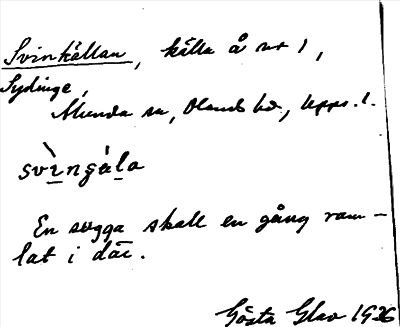 Svinkällan, källa å nr 1,
Sydinge,
Munda sn, Olands hd, Upps. l.
svìngála
En sugga skall en gång ram-
lat i där.
Gösta Glav 1936